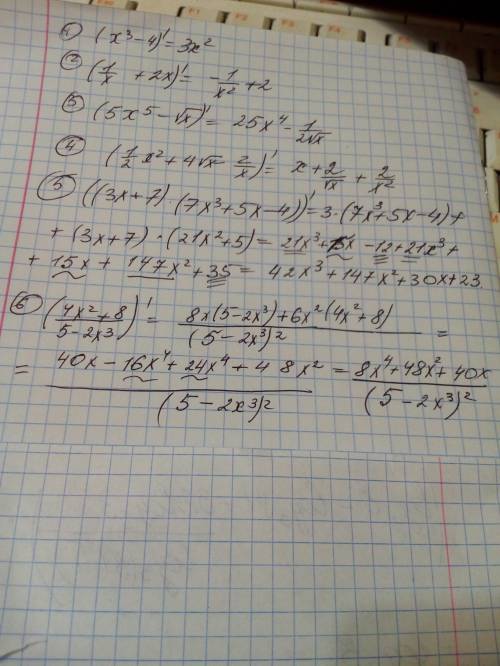 ① (x³-4)' = 3x²
② (1/x + 2x)' = -1/x² + 2
③ (5x⁵ - √x)' = 25x⁴ - 1/(2√x)
④ (1/2 x² + 4√x - 2/x)' = x + 2/√x + 2/x²
⑤ ((3x+7)·(7x³+5x-4))' = 3·(7x³+5x-4)+
+ (3x+7)·(21x²+5) = 21x³+15x-12+21x³+
+ 15x + 147x² + 35 = 42x³+147x²+30x+23.
⑥ ((4x²+8)/(5-2x3))' = (8x(5-2x³)+6x²(4x²+8))/(5-2x³)² =
= (40x-16x⁴+24x⁴+48x²)/(5-2x³)² = (8x⁴+48x²+40x)/(5-2x³)²